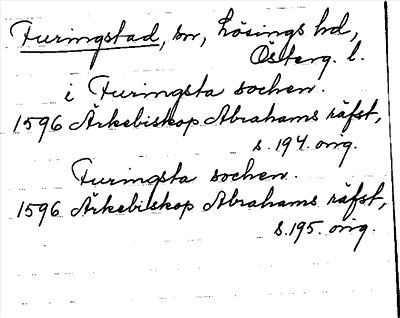 Furingstad, sn, Lösings hd,
Österg. l.
i Furingsta sochen.
1596 Ärkebiskop Abrahams räfst,
s. 194. orig.
Furingsta sochen.
1596 Ärkebiskop Abrahams räfst,
s. 195. orig.